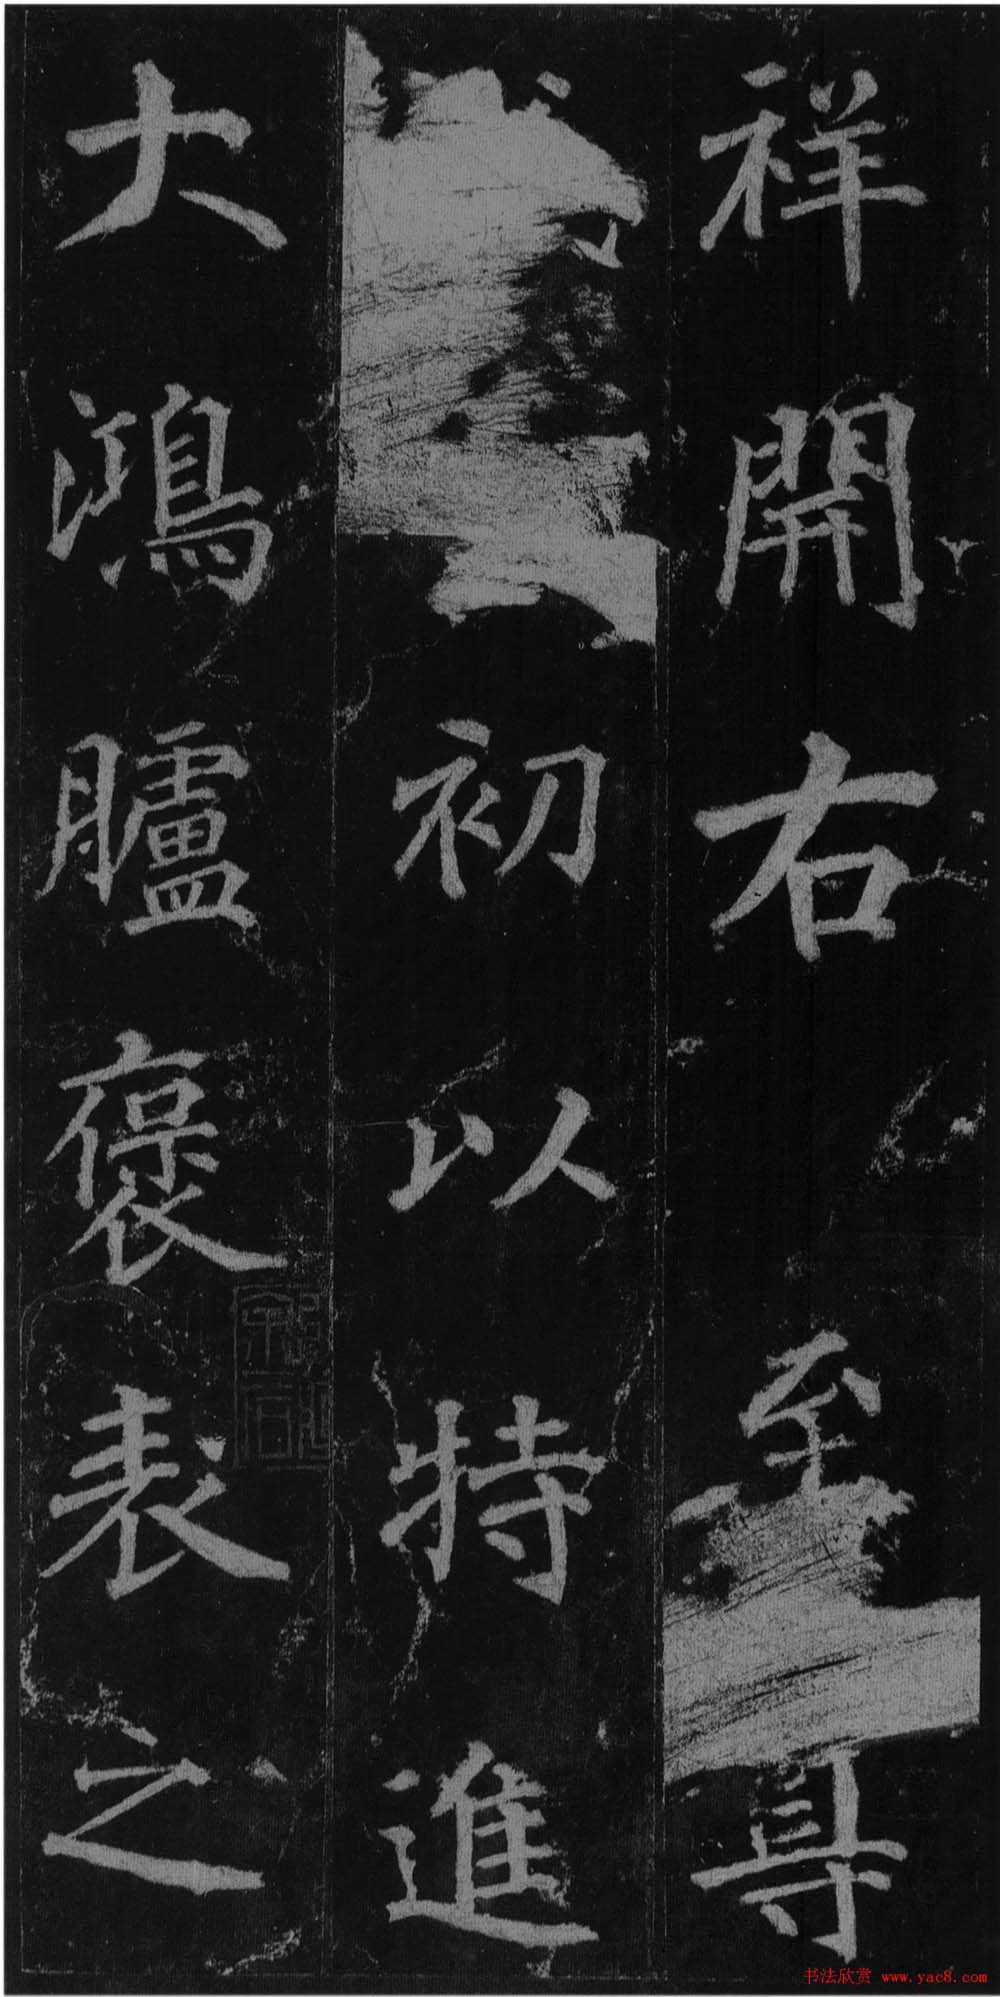 祥開右至尋
初以特進
大鴻臚褒表之
书法欣赏 www.yac8.com